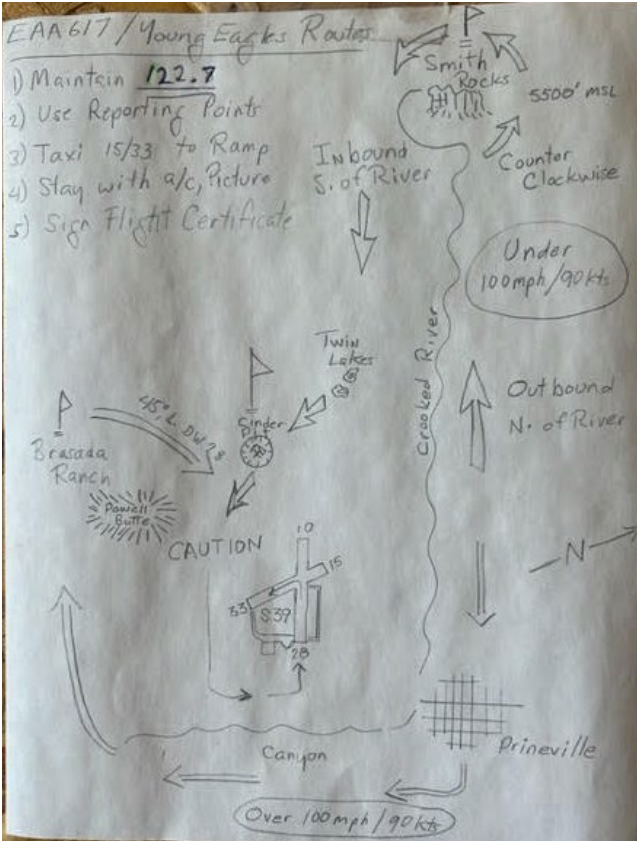 EAA617/Young Eagles Routes
1) Maintain 122.7
2) Use Reporting Points
3) Taxi 15/33 to Ramp
4) Stay with a/c, Picture
5) Sign Flight Certificate
Smith
Rocks
5500' MSL
Counter
Clockwise
Inbound
S. of River
Under
100mph/90kts
Crooked River
Outbound
N. of River
Twin
Lakes
Sinder
Pit
45° L. DW 28
Brasada
Ranch
Powell
Butte
CAUTION
10
15
33
S39
28
N
Prineville
Canyon
Over 100mph/90kts